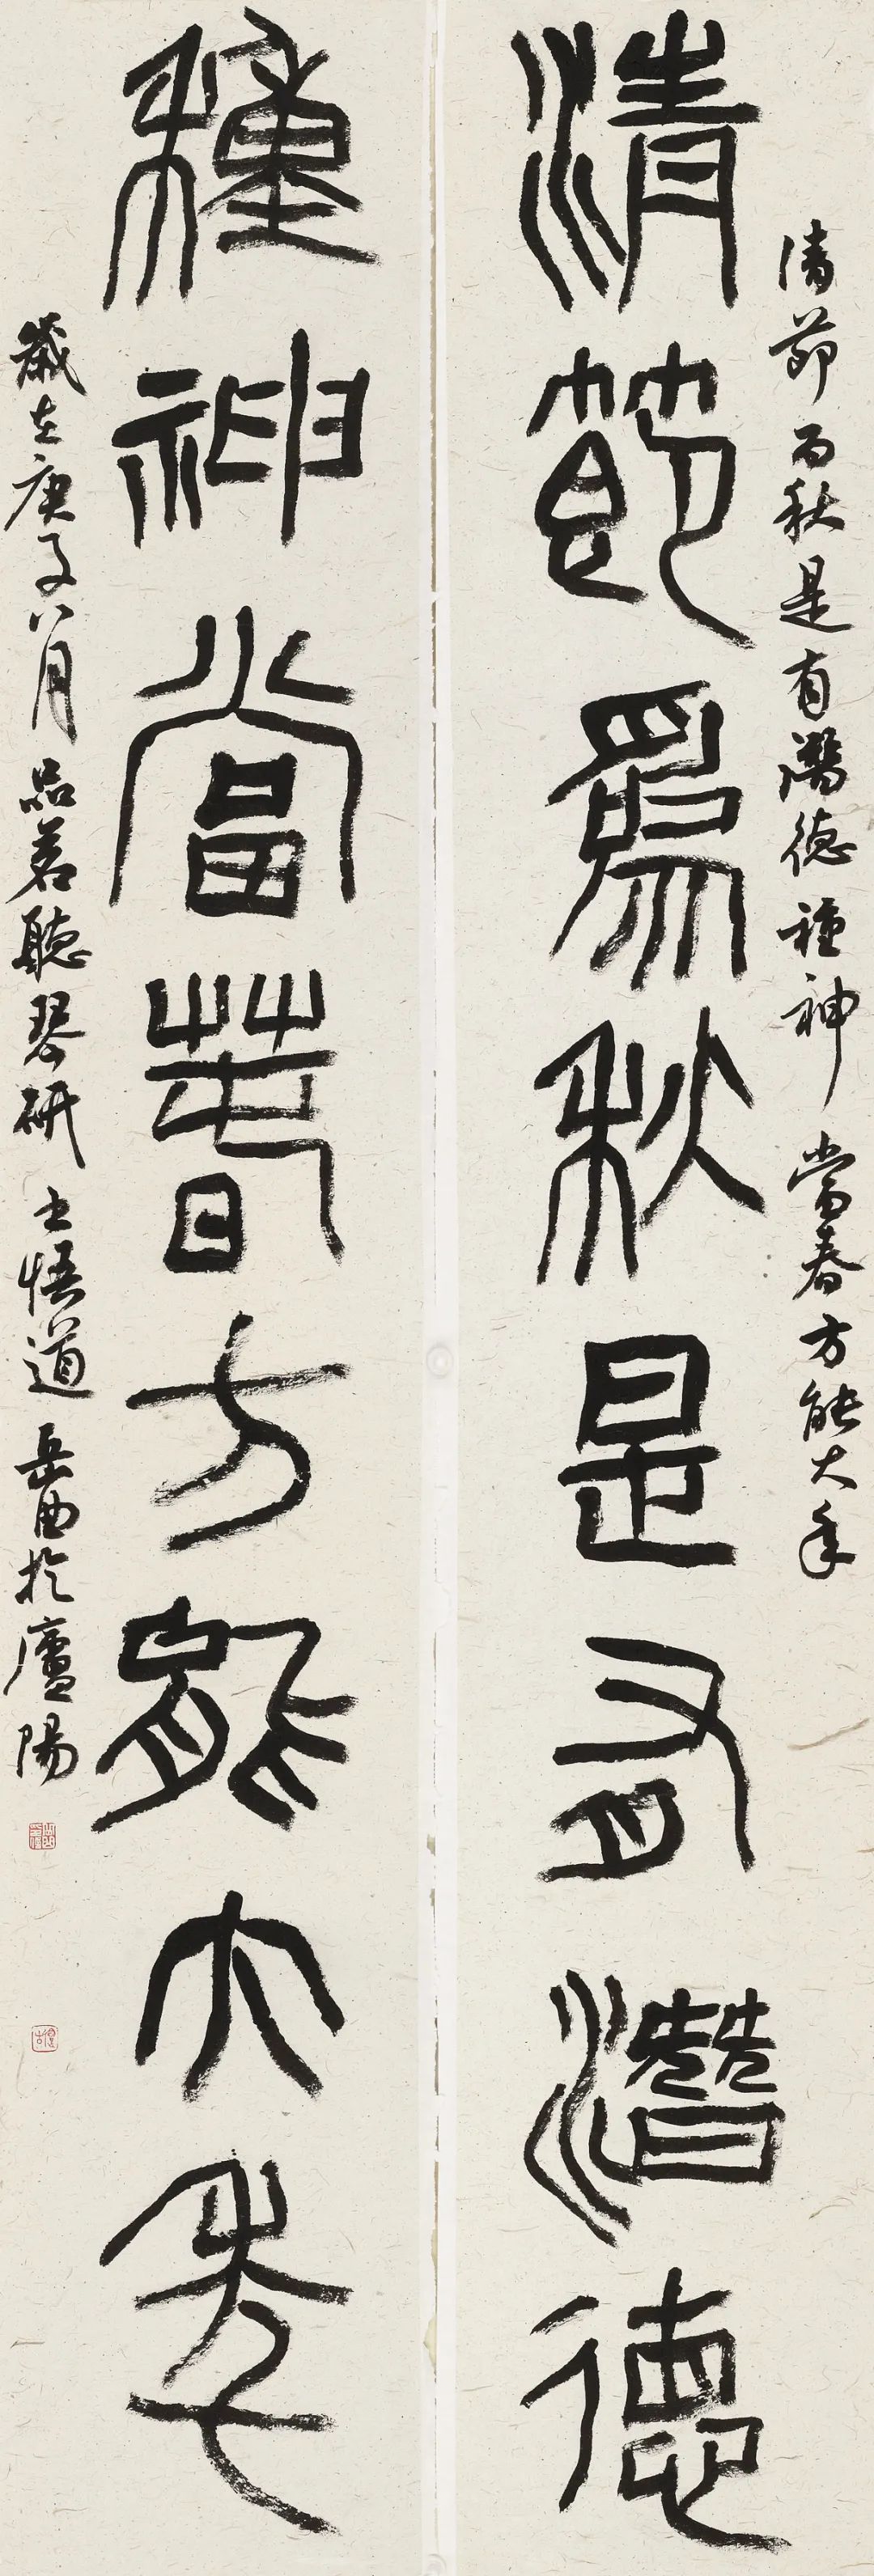 清節而秋是有潛德種神當春方能大年
清節為秋是有潛德
種神當春方能大年
歲在庚子八月品茗聽琴研土悟道岳西於廬陽